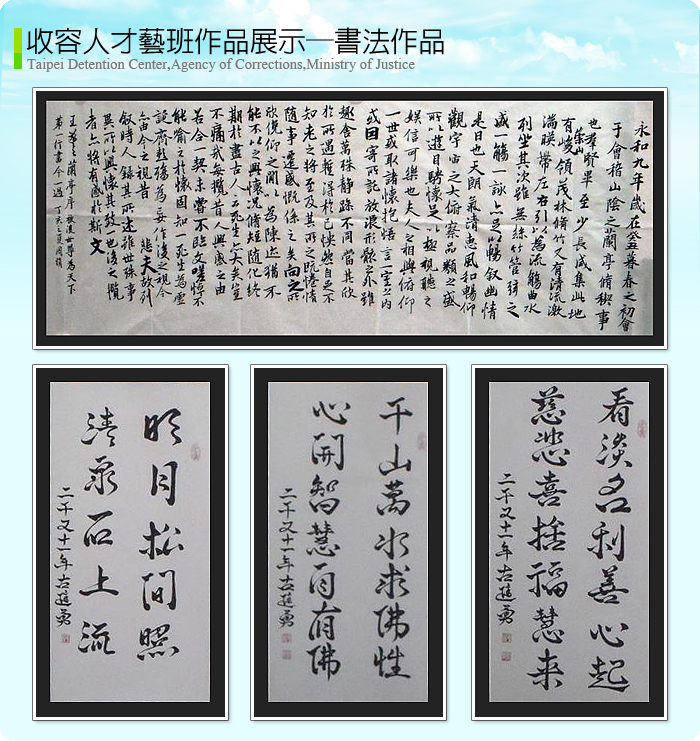 收容人才藝班作品展示─書法作品
Taipei Detention Center,Agency of Corrections,Ministry of Justice
永和九年歲在癸丑暮春之初會
于會稽山陰之蘭亭脩稧事
也羣賢畢至少長咸集此地
有崇山峻領茂林脩竹又有清流激
湍暎帶左右引以為流觴曲水
列坐其次雖無絲竹管弦之
盛一觴一詠亦足以暢叙幽情
是日也天朗氣清惠風和暢仰
觀宇宙之大俯察品類之盛
所以遊目騁懷足以極視聽之
娛信可樂也夫人之相與俯仰
一世或取諸懷抱悟言一室之內
或因寄所託放浪形骸之外雖
趣舍萬殊靜躁不同當其欣
於所遇暫得於己怏然自足不
知老之將至及其所之既惓情
隨事遷感慨係之矣向之所
欣俛仰之閒以為陳迹猶不
能不以之興懷況脩短隨化終
期於盡古人云死生亦大矣豈
不痛哉每攬昔人興感之由
若合一契未嘗不臨文嗟悼不
能喻之於懷固知一死生為虛
誕齊彭殤為妄作後之視今
亦由今之視昔 悲夫故列
叙時人錄其所述雖世殊事
異所以興懷其致一也後之攬
者亦將有感於斯文
王羲之蘭亭序被後世尊為天下
第一行書
明月松間照
清泉石上流
二千又十一年古
千山萬水求佛性
心開智慧百有佛
二千又十一年古
看淡名利善心起
慈悲喜捨福慧来
二千又十一年古